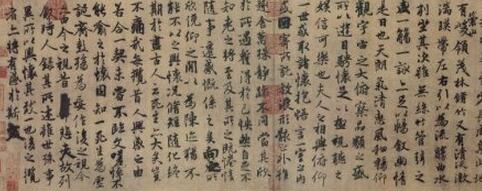 有崇山峻領茂林脩竹又有清流激
湍暎帶左右引以為流觴曲水
列坐其次雖無絲竹管弦之
盛一觴一詠亦足以暢敘幽情
是日也天朗氣清惠風和暢仰
觀宇宙之大俯察品類之盛
所以遊目騁懷足以極視聽之
娛信可樂也夫人之相與俯仰
一世或取諸懷抱悟言一室之內
或因寄所託放浪形骸之外雖
趣舍萬殊靜躁不同當其欣
於所遇暫得於己怏然自足不
知老之將至及其所之既惓情
隨事遷感慨係之矣向之所
欣俛仰之間以為陳迹猶不
能不以之興懷況脩短隨化終
期於盡古人云死生亦大矣豈
不痛哉每攬昔人興感之由
若合一契未嘗不臨文嗟悼不
能喻之於懷固知一死生為虛
誕齊彭殤為妄作後之視今
亦由今之視昔悲夫故列
敘時人錄其所述雖世殊事
異所以興懷其致一也後之攬
者亦將有感於斯